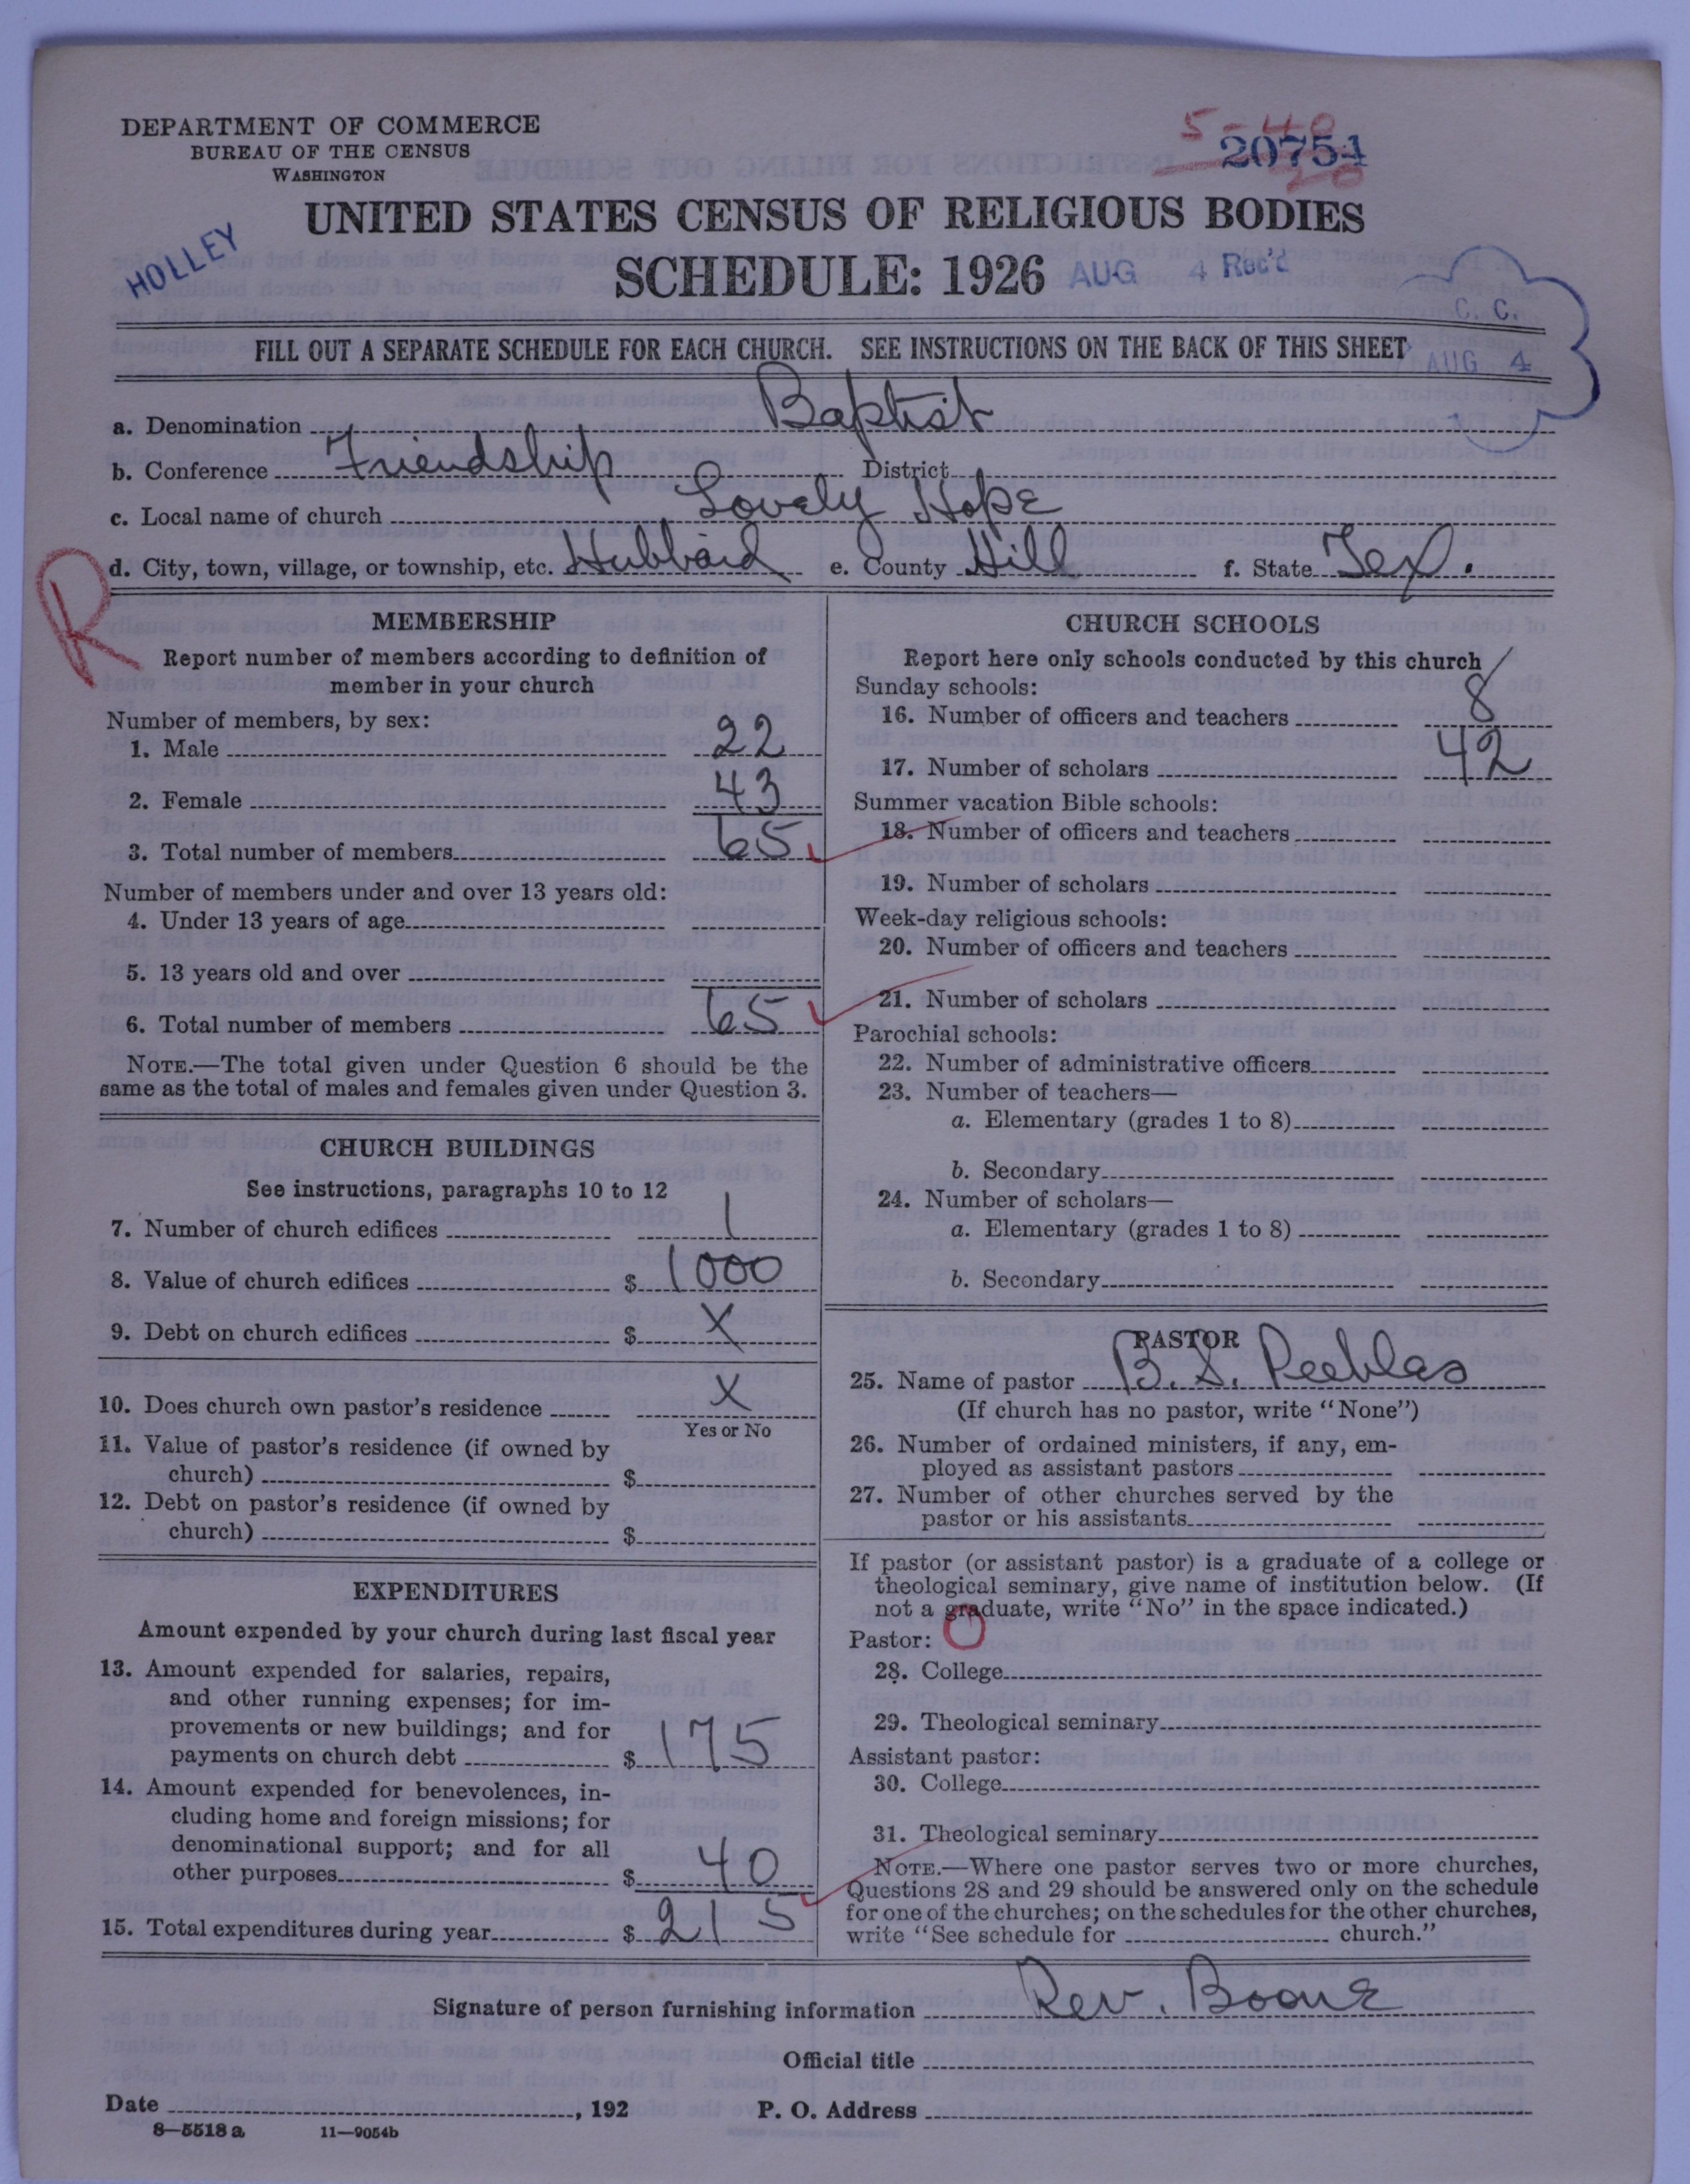 DEPARTMENT OF COMMERCE
BUREAU OF THE CENSUS
WASHINGTON
5-40
20754
20
HOLLEY
UNITED STATES CENSUS OF RELIGIOUS BODIES
SCHEDULE: 1926 AUG 4 Rec'd
C. C.
AUG 4
FILL OUT A SEPARATE SCHEDULE FOR EACH CHURCH. SEE INSTRUCTIONS ON THE BACK OF THIS SHEET
a. Denomination Baptist
b. Conference Friendship District
c. Local name of church Lovely Hope
d. City, town, village, or township, etc. Hubbard e. County Hill f. State Tex.
R
MEMBERSHIP
Report number of members according to definition of
member in your church
Number of members, by sex:
1. Male 22
2. Female 43
3. Total number of members 65
Number of members under and over 13 years old:
4. Under 13 years of age
5. 13 years old and over
6. Total number of members 65
NOTE.—The total given under Question 6 should be the
same as the total of males and females given under Question 3.
CHURCH BUILDINGS
See instructions, paragraphs 10 to 12
7. Number of church edifices 1
8. Value of church edifices $ 1000
9. Debt on church edifices $ X
10. Does church own pastor's residence X
Yes or No
11. Value of pastor's residence (if owned by
church) $
12. Debt on pastor's residence (if owned by
church) $
EXPENDITURES
Amount expended by your church during last fiscal year
13. Amount expended for salaries, repairs,
and other running expenses; for im-
provements or new buildings; and for
payments on church debt $ 175
14. Amount expended for benevolences, in-
cluding home and foreign missions; for
denominational support; and for all
other purposes $ 40
15. Total expenditures during year $ 215
CHURCH SCHOOLS
Report here only schools conducted by this church
Sunday schools:
16. Number of officers and teachers 8
17. Number of scholars 42
Summer vacation Bible schools:
18. Number of officers and teachers
19. Number of scholars
Week-day religious schools:
20. Number of officers and teachers
21. Number of scholars
Parochial schools:
22. Number of administrative officers
23. Number of teachers—
a. Elementary (grades 1 to 8)
b. Secondary
24. Number of scholars—
a. Elementary (grades 1 to 8)
b. Secondary
PASTOR
25. Name of pastor B. S. Peeblas
(If church has no pastor, write "None")
26. Number of ordained ministers, if any, em-
ployed as assistant pastors
27. Number of other churches served by the
pastor or his assistants
If pastor (or assistant pastor) is a graduate of a college or
theological seminary, give name of institution below. (If
not a graduate, write "No" in the space indicated.)
Pastor: 1
28. College
29. Theological seminary
Assistant pastor:
30. College
31. Theological seminary
NOTE.—Where one pastor serves two or more churches,
Questions 28 and 29 should be answered only on the schedule
for one of the churches; on the schedules for the other churches,
write "See schedule for church."
Signature of person furnishing information Rev. Boone
Official title
Date , 192 P. O. Address
8—5518 a 11—9054b